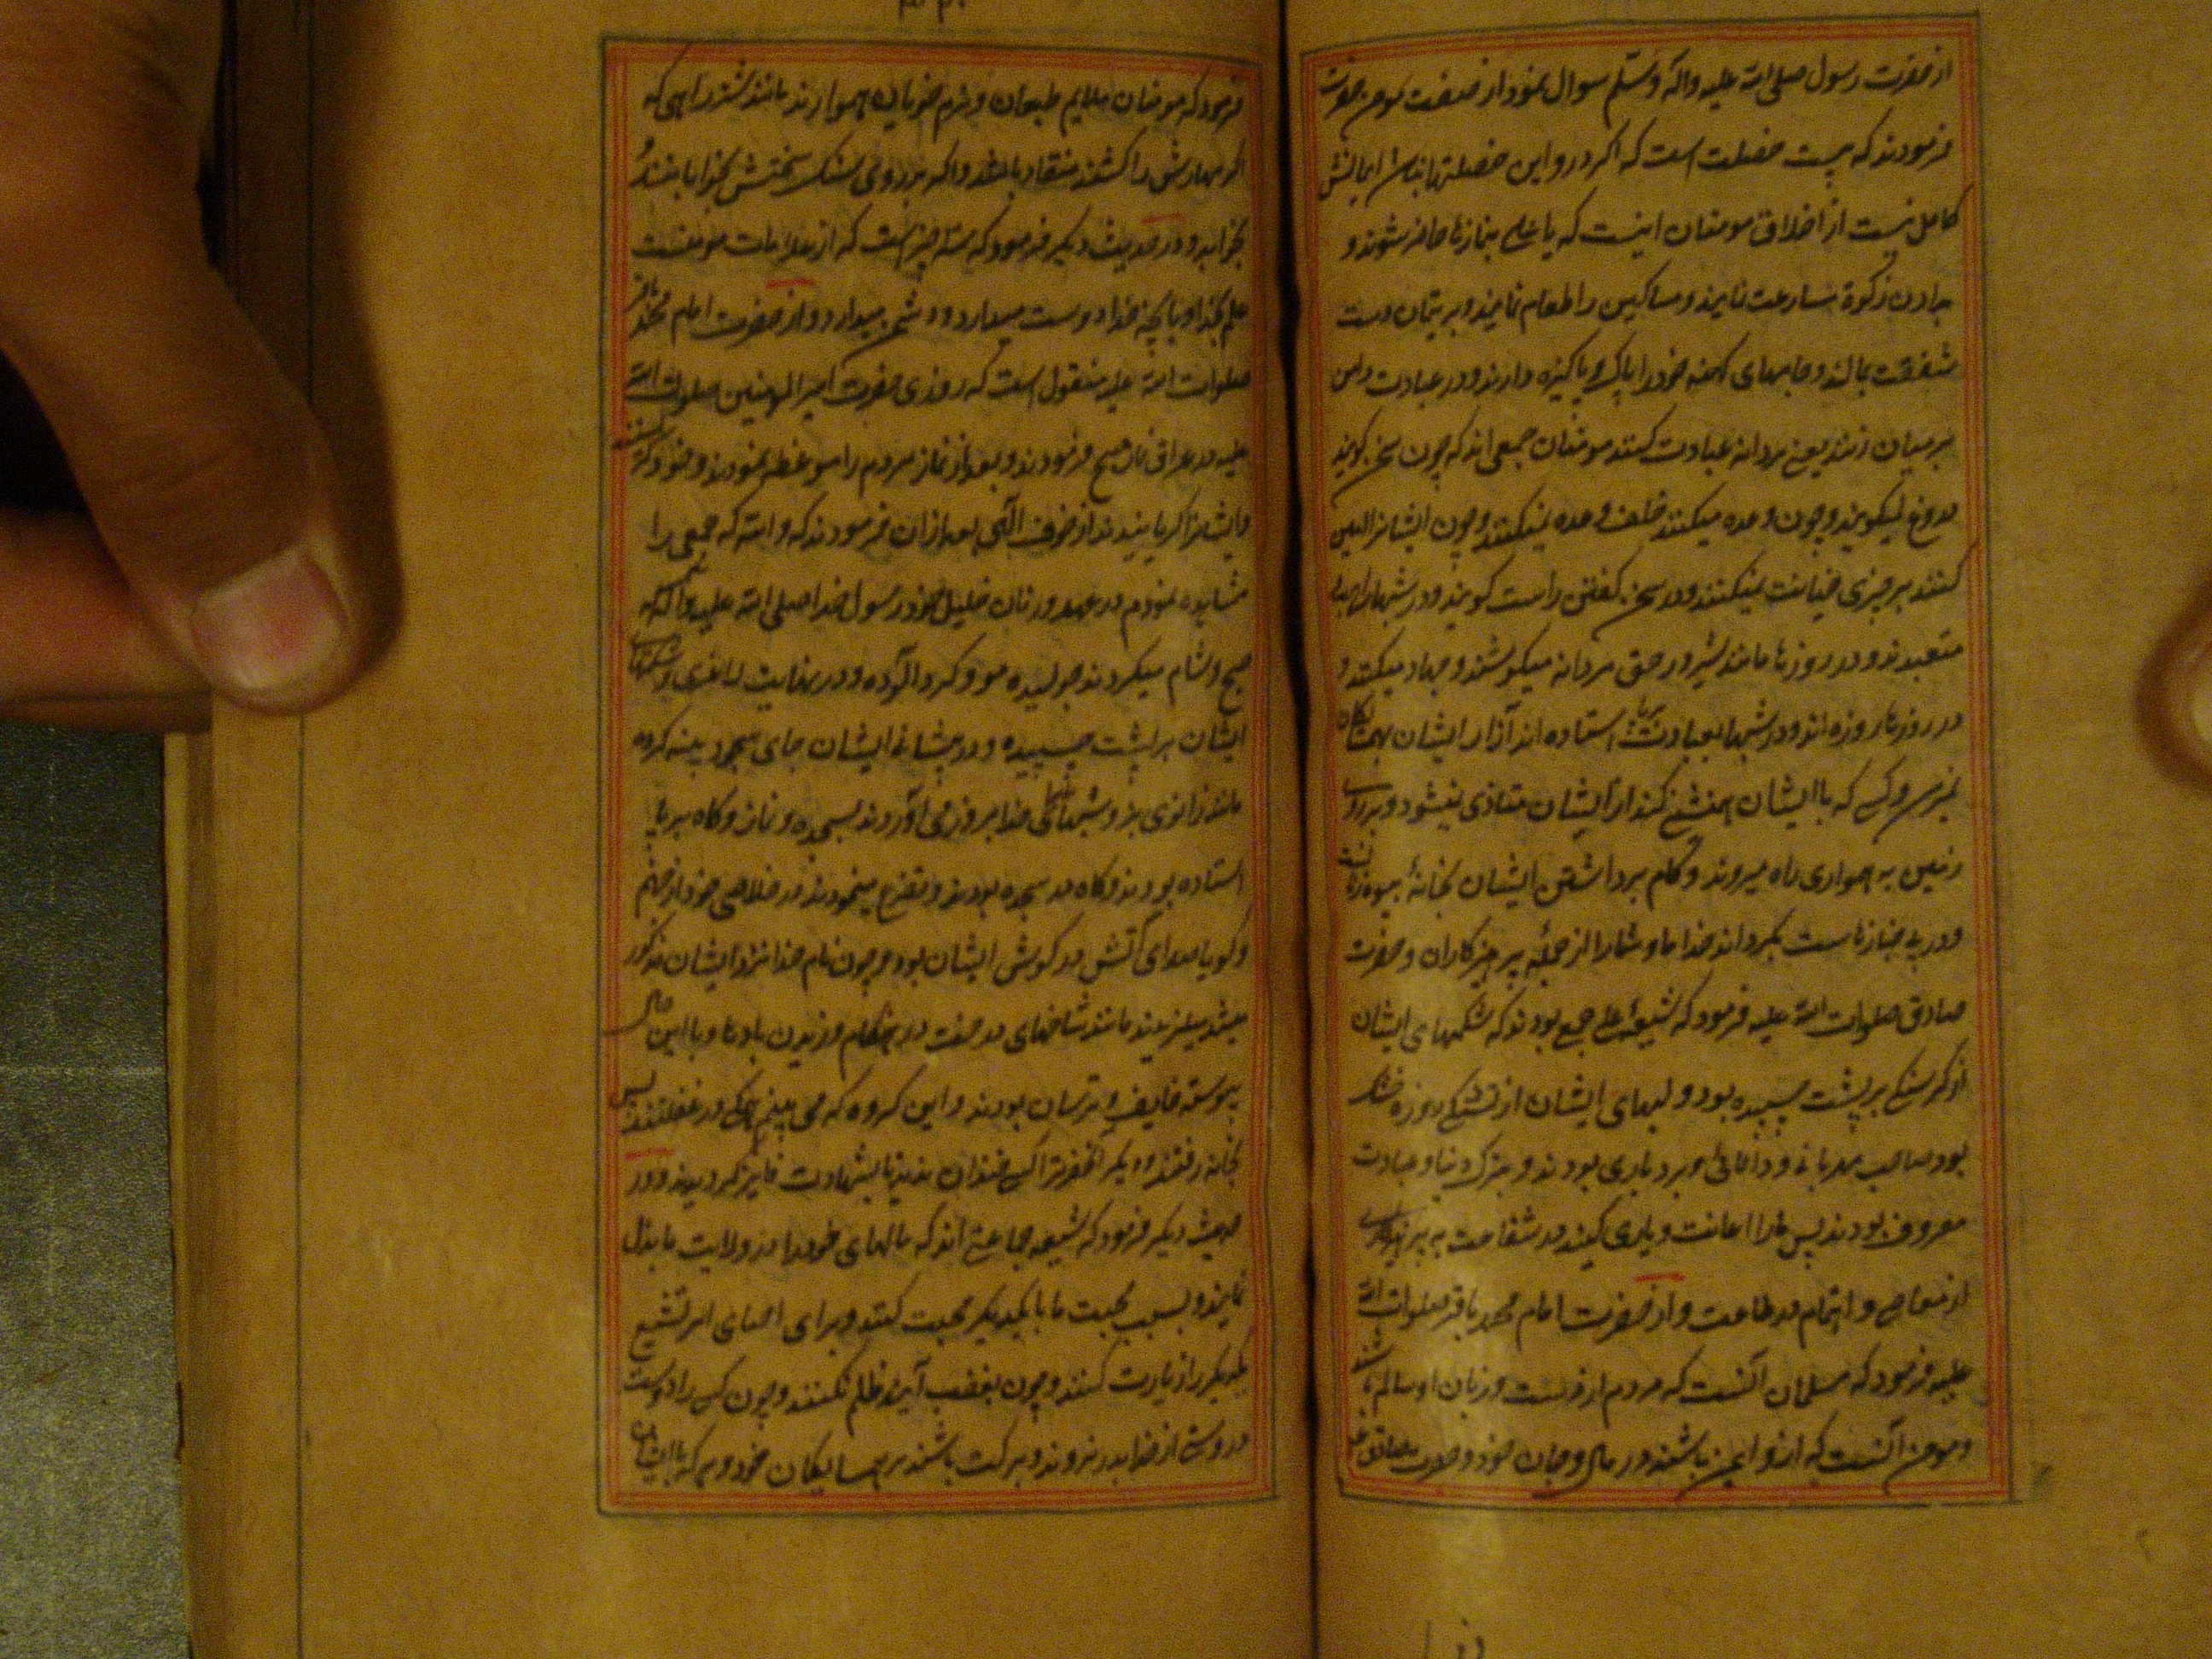 از حضرت رسول صلی الله علیه واله وسلم سوال نمود از صفت مومن حضرت
فرمودند که بیست خصلت است که اکر در و این خصلتها نباشد ایمانش
کامل نیست از اخلاق مومنان اینست که یا علی بنمازها حاضر شوند و
بدادن زکوة مسارعت نمایند و مساکین را طعام نمایند و بر یتیمان دست
شفقت بمالند و جامهای کهنه خود را پاک و پاکیزه دارند و در عبادت دامن
بر میان زنند یعنی مردانه عبادت کنند مومنان جمعی اند که چون سخن کویند
دروغ نمیکویند و چون وعده میکنند خلف وعده نمیکنند و چون ایشانرا امین
کنند بر چیزی خیانت نمیکنند و در سخن کفتن راست کویند و در شبها راهبان
متعبدند و در روزها مانند شیر در حق مردانه میکوشند و جهاد میکنند و
در روزها روزه اند و در شبها بعبادت برپا استاده اند آزار ایشان بهمسایکان
نمیرسد و کسی که با ایشان همنشینی کند از ایشان متاذی نمیشود و بر روی
زمین به همواری راه میروند و کام برداشتن ایشان بخانهٔ بیوه زنانست
و در پی جنازهاست بکرداند خدا ما و شما را از جملهٔ پرهیزکاران و حضرت
صادق صلوات الله علیه فرمود که شیعهٔ علی جمعی بودند که شکمهای ایشان
از کرسنکی بر پشت چسپیده بود و لبهای ایشان از تشنکی روزه خشک
بود صاحب مهربانی و دانائی و بردباری بودند و بترک دنیا و عبادت
معروف بودند پس مارا اعانت و یاری کنید در شفاعت به پرهیزکاری
از معاصی و اهتمام در طاعت و از حضرت امام محمد باقر صلوات الله
علیه فرمود که مسلمان آنست که مردم از دست و زبان او سالم باشند
و مومن آنست که ازو ایمن باشند در مال و جان خود و حضرت صادق
فرمود که مومنان ملایم طبعان و نرم خویان هموارند مانند شتر راهی که
اکر مهارش را کشند منقاد باشد و اکر بر روی سنک سختش بخوابانند
بخوابد و در حدیث دیکر فرمود که سه چیز است که از علامات مومنست
علم بخدا و بانچه خدا دوست میدارد و دشمن میدارد و از حضرت امام محمد باقر
صلوات الله علیه منقول است که روزی حضرت امیر المومنین صلوات الله
علیه در عراق نماز صبح فرمودند و بعد از نماز مردم را موعظه نمودند و خود کریستند
و ایشانرا کریانیدند از خوف الهی بعد از ان فرمودند که والله که جمعی را
مشاهده نمودم در عهد و زمان خلیل خود رسول خدا صلی الله علیه واله که
صبح و شام میکردند ژولیده مو و کرد آلوده و در نهایت لاغری و شکمهای
ایشان بر پشت چسپیده و در پیشانی ایشان جای سجود پینه کرده
مانند زانوی بز و شبهای خدا بروزمی آوردند بسجده و نماز و کاه بر پا
استاده بودند و کاه در سجده بودند و تضرع مینمودند در خلاصی خود از جهنم
و کویا صدای آتش در کوش ایشان بود و چون نام خدا نزد ایشان مذکور
میشد میلرزیدند مانند شاخهای درخت در هنکام وزیدن بادها و با این حال
پیوسته خایف و ترسان بودند و این کروه که می بینم همکی در غفلتند پس
بخانه رفتند و دیکر انحضرترا کسی خندان ندید تا بشهادت فایز کردیدند و در
حدیث دیکر فرمود که شیعه جماعتی اند که مالهای خود را در ولایت ما بذل
نمایند و بسبب محبت ما با یکدیکر محبت کنند و برای احیای امر تشیع
یکدیکر را زیارت کنند و چون بغضب آیند ظلم نکنند و چون کسی را دوست
در دوستی از خدا بدر نروند و برکت باشند بر همسایکان خود و هر که با ایشان